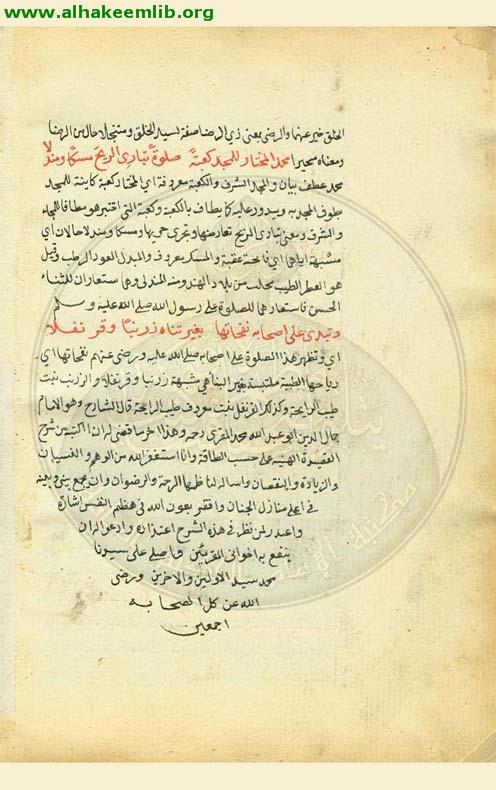 www.alhakeemlib.org
الخلق خير عنها والرضى بمعنى ذي الرضا صفة لسيد الخلق ومتنخلا حال من الرضا
ومعناه متخيرا محمد المختار للمجد كعبة صلوة تباري الريح مسكا ومندلا
محمد عطف بيان والمجد الشرف والكعبة معروفة اي المختار كعبة كاينة للمجد
يطوف المجد به ويدور عليه كما يطاف بالكعبة وكعبة التي اختير هو مطافا للمجد
والشرف ومعنى تباري الريح تعارضها وتجري جريها ومسكا ومندلا حالان اي
مشبهة اياهما اي فائحة عقبة والمسك معروف والمندل العود الرطب وقيل
هو العطر الطيب يجلب من بلاد الهند ومنه المندلي وهما ستعاران للثناء
الحسن فاستعارهما للصلوة على رسول الله صلى الله عليه وسلم
وتبدي على اصحابه نفحاتها بغير تناه زرنبا وقرنفلا
اي وتظهر هذا الصلوة على اصحابه صلى الله عليه ورضى عنهم نفحاتها اي
رياحها الطيبة ملتبسة بغير انتهاهي مشبهة زرنبا وقرنفلا والزرنب نبت
طيب الرايحة وكذلك القرنفل نبت معروف طيب الرايحة قال الشارح وهو الامام
جمال الدين ابو عبد الله محمد المقري رحمه وهذا اخر ما قضى لي ان اكتبه من شرح
القصيدة الهنية على حسب الطاقة وانا استغفر الله من الوهم والنسيان
والزيادة والنقصان واساله لناظمها الرحمة والرضوان وان يجمع بيني وبينه
في اعلى منازل الجنان وافقر بعون الله في هظيم النفس اشارة
واعتذر لمن نظر في هذه الشرح اعتذاره وادعو له ان
ينفع به اخواني المقريين واصلي على سيدنا
محمد سيد الاولين والاخرين ورضى
الله عن كل الصحابه
اجمعين